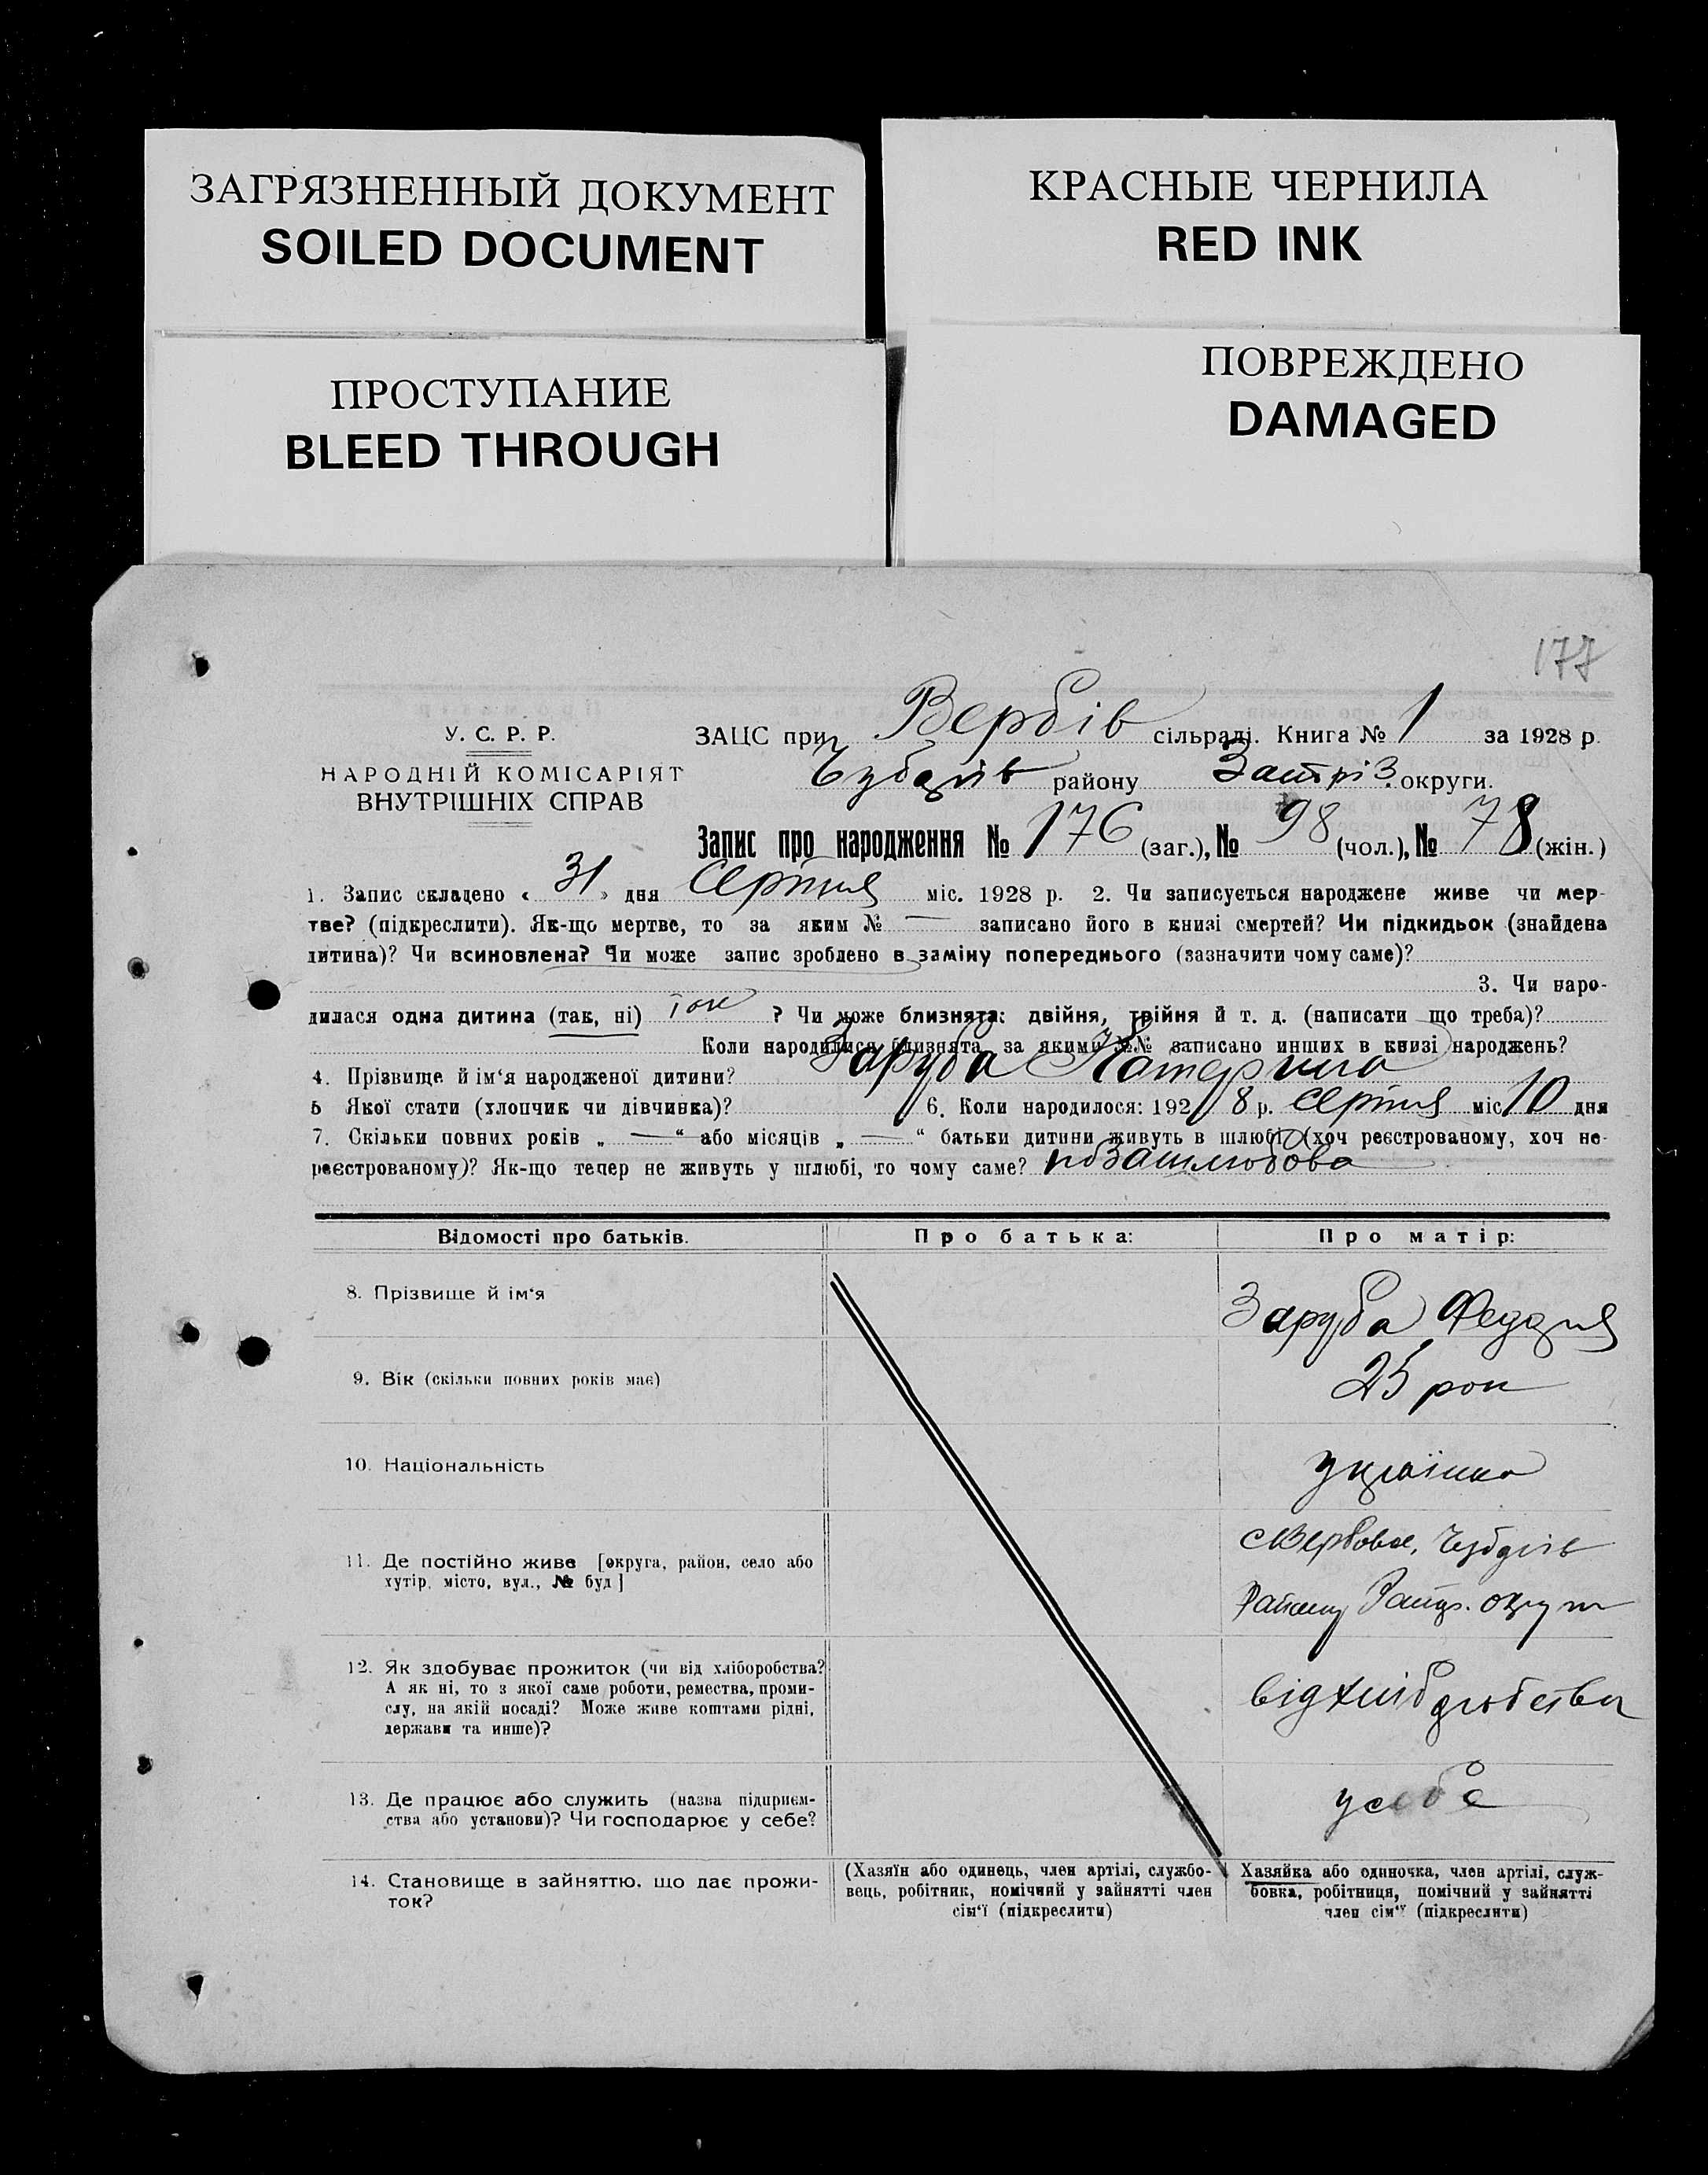 ЗАГРЯЗНЕННЫЙ ДОКУМЕНТ
SOILED DOCUMENT
КРАСНЫЕ ЧЕРНИЛА
RED INK
ПРОСТУПАНИЕ
BLEED THROUGH
ПОВРЕЖДЕНО
DAMAGED
177
У. С. Р. Р.
НАРОДНІЙ КОМІСАРІЯТ
ВНУТРІШНІХ СПРАВ
ЗАЦС при Вербів сільраді. Книга № 1 за 1928 р.
району округи.
Запис про народження № 176 (заг.), № 98 (чол.), № 78 (жін.)
1. Запис складено « 31 » дня Серпня міс. 1928 р. 2. Чи записується народжене живе чи мер-
тве? (підкреслити). Як-що мертве, то за яким № — записано його в книзі смертей? Чи підкидьок (знайдена
дитина)? Чи всиновлена? Чи може запис зроблено в заміну попереднього (зазначити чому саме)?
3. Чи наро-
дилася одна дитина (так, ні) так ? Чи може близнята: двійня, трійня й т. д. (написати що треба)?
Коли народилися близнята, за якими №№ записано инших в книзі народжень?
4. Прізвище й ім‘я народженої дитини? Заруба Катерина
5 Якої стати (хлопчик чи дівчинка)? 6. Коли народилося: 192 8 р. серпня міс 10 дня
7. Скільки повних років „ — “ або місяців „ — “ батьки дитини живуть в шлюбі (хоч реєстрованому, хоч не-
реєстрованому)? Як-що тепер не живуть у шлюбі, то чому саме? позашлюбова
Відомості про батьків.
Про батька:
Про матір:
8. Прізвище й ім‘я
Заруба
9. Вік (скільки повних років має)
25 рок
10. Національність
українка
11. Де постійно живе [округа, район, село або
хутір, місто, вул., № буд ]
12. Як здобуває прожиток (чи від хліборобства?
А як ні, то з якої саме роботи, ремества, проми-
слу, на якій посаді? Може живе коштами рідні,
держави та инше)?
від хліборобства
13. Де працює або служить (назва підприєм-
ства або установи)? Чи господарює у себе?
у себе
14. Становище в зайняттю, що дає прожи-
ток?
(Хазяїн або одинець, член артілі, службо-
вець, робітник, помічний у зайнятті член
сім‘ї (підкреслити)
Хазяйка або одиночка, член артілі, служ-
бовка, робітниця, помічний у зайнятті
член сім‘ї (підкреслити)